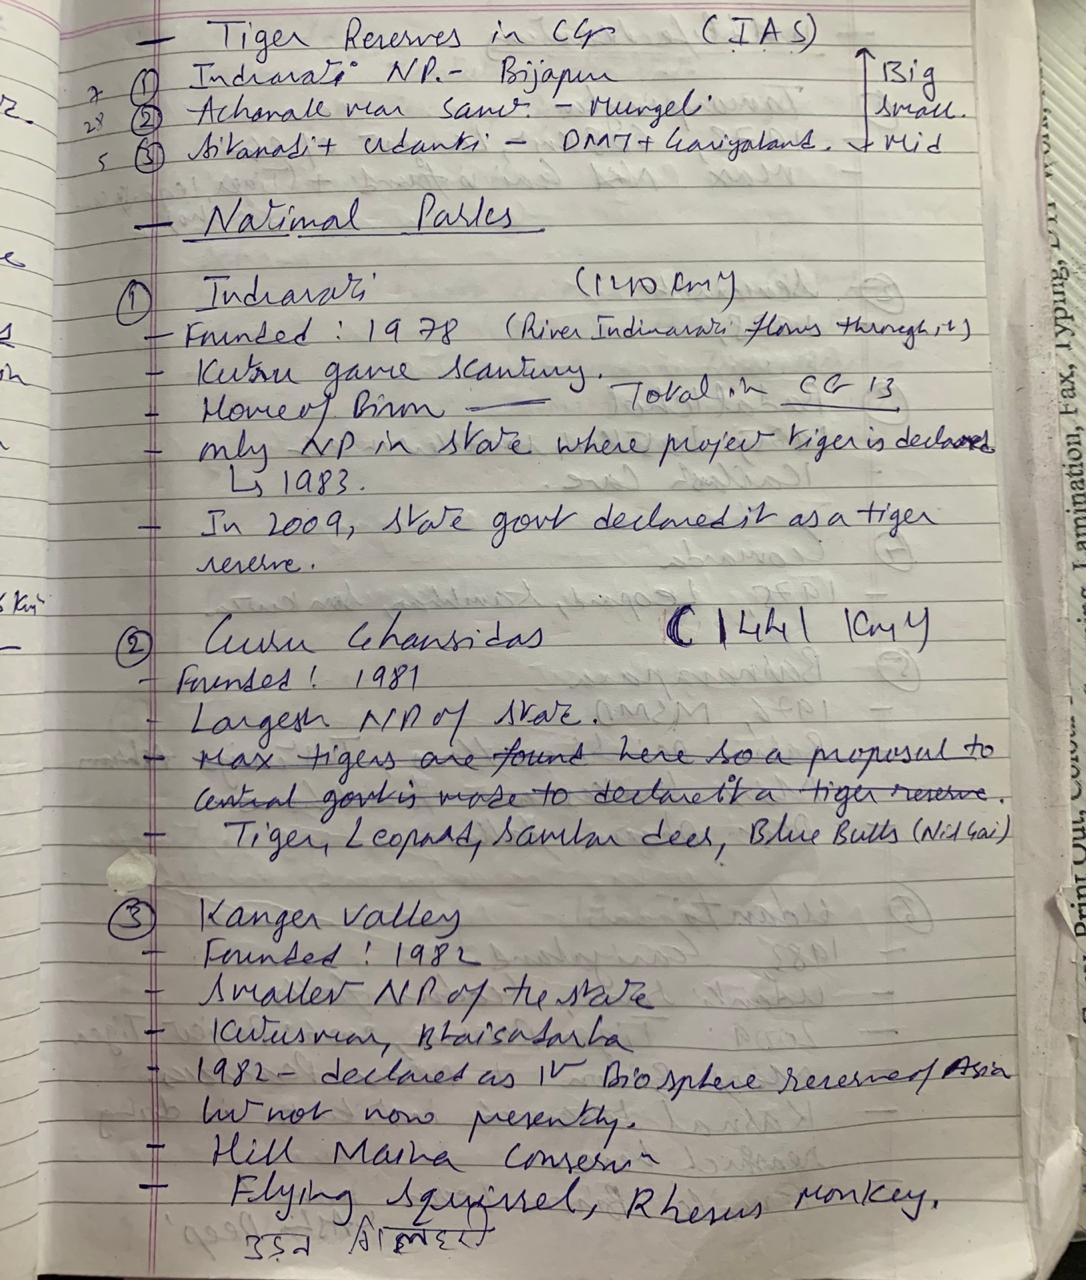 — Tiger Reserves in CG (IAS)
7 ① Indravati NP. - Bijapur ↑ Big
28 ② Achanakmar Sanc. - Mungeli small.
5 ③ Sitanadi + Udanti - DMT + Gariyaband. ↓ Mid
— National Parks
① Indravati (1240 km²)
— Founded : 1978 (River Indravati flows through it)
— Kutru game scantury.
— Home of Bison — Total in CG 13
— only NP in state where project tiger is declared
↳ 1983.
— In 2009, state govt declared it as a tiger
reserve.
② Guru Ghansidas (1441 km²)
- Founded : 1981
— Largest NP of state.
— Max tigers are found here so a proposal to
central govt is made to declare it a tiger reserve.
— Tiger, Leopard, Sambar deer, Blue Bulls (Nilgai)
③ Kanger Valley
— Founded : 1982
— Smallest NP of the state
— Kutusmar, Bhaisadarha
— 1982 - declared as 1st Biosphere reserve of Asia
but not now presently.
— Hill Maina Conserv^n
— Flying Squirrel, Rhesus Monkey.
उड़न गिलहरी
Lamination, Fax, Typing,
Print Out, Colour